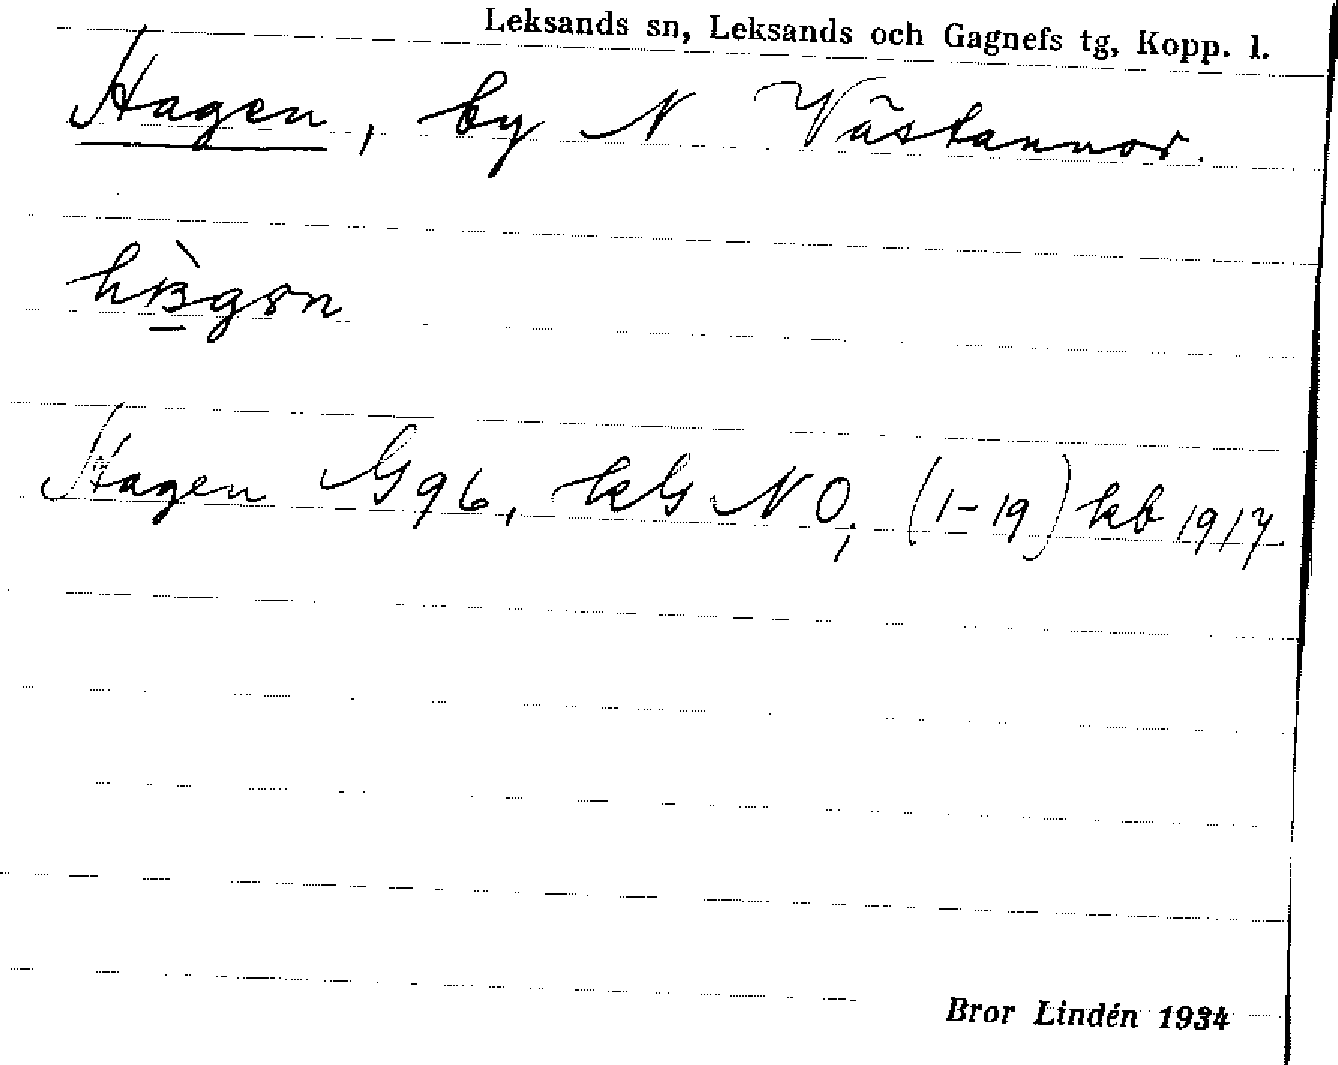 Leksands sn, Leksands och Gagnefs tg, Kopp. l.
Hagen, by N Västannor.
Hagen G 96, kG NO, (1-19) kb 1917.
Bror Lindén 1934